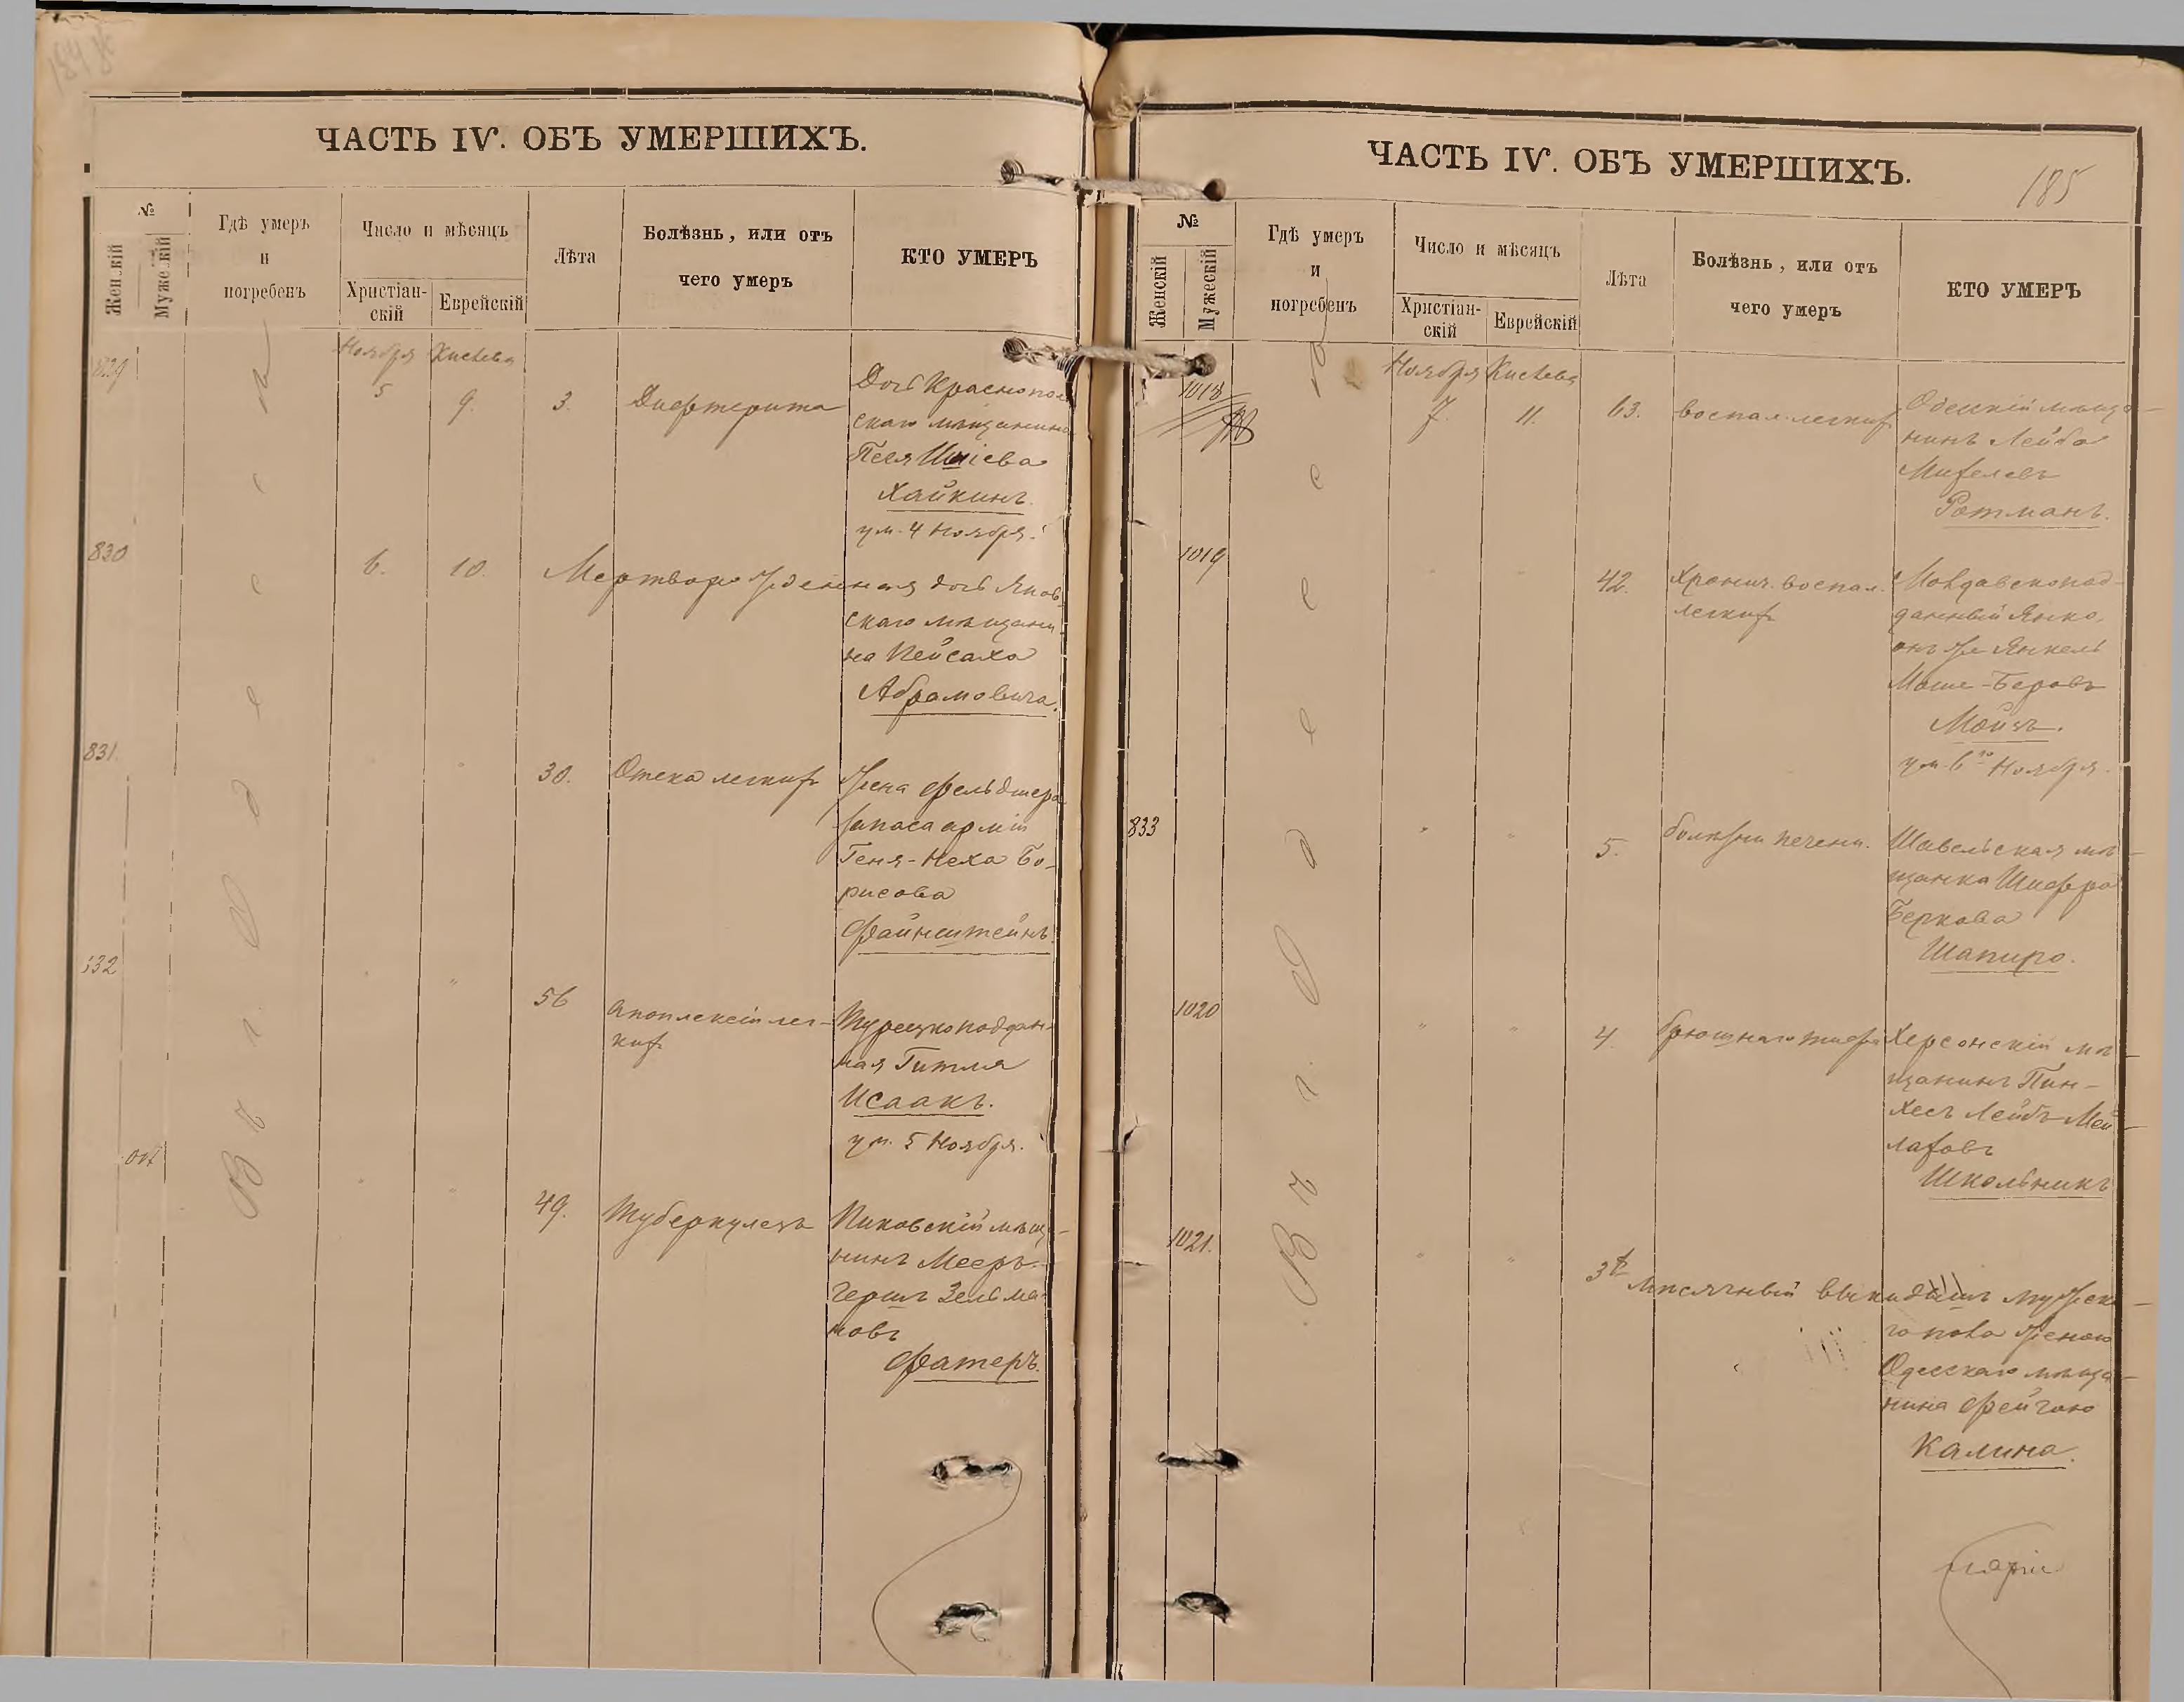 ЧАСТЬ IV. ОБЪ УМЕРШИХЪ.
№
Женскій
Мужескій
Гдѣ умеръ
и
погребенъ
Число и мѣсяцъ
Христіан-
скій
Еврейскій
Лѣта
Болѣзнь, или отъ
чего умеръ
КТО УМЕРЪ
Въ г. Одессѣ
829
Ноября Кислева
5 9. 3. Дифтерита
Дочь Краснополь
скаго мѣщанина
Песя
Хайкинъ.
ум. 4 Ноября.
830
6. 10. Мертворожденная дочь Янов-
скаго мѣщани-
на Пейсаха
Абрамовича.
831.
" " 30. Отека легкихъ
Жена фельдшера
запаса арміи
Геня-Неха Бо-
рисова
Файнштейнъ.
832
" " 56 Апоплексіи лег-
кихъ
Турецкоподдан-
ная Гитля
Исаакъ.
ум. 5 Ноября.
" " 49. Туберкулезъ
Пиковскій мѣща-
нинъ Мееръ-
Гершъ Зельма-
новъ
Фатеръ.
ЧАСТЬ IV. ОБЪ УМЕРШИХЪ.
185
№
Женскій
Мужескій
Гдѣ умеръ
и
погребенъ
Число и мѣсяцъ
Христіан-
скій
Еврейскій
Лѣта
Болѣзнь, или отъ
чего умеръ
КТО УМЕРЪ
Въ г. Одессѣ
1018
Ноября Кислева
7. 11. 63. воспал. легкихъ
Одесскій мѣща-
нинъ Лейба
Михелевъ
Ротманъ.
1019
" " 42. Хронич. воспал.
легкихъ
Молдавскопод-
данный Янко,
онъ же Янкель
Моше-Беровъ
Мойзъ.
ум. 6го Ноября.
833
" " 5. болѣзни печени.
Шавельская мѣ-
щанка Шифра
Беркова
Шапиро.
1020
" " 4. брюшнаго тифа
Херсонскій мѣ-
щанинъ Пин-
хесъ Лейбъ Мей-
лаховъ
Школьникъ
1021.
" " 3х мѣсячный выкидышъ мужска-
го пола женою
Одесскаго мѣща-
нина Фейгою
Калина.